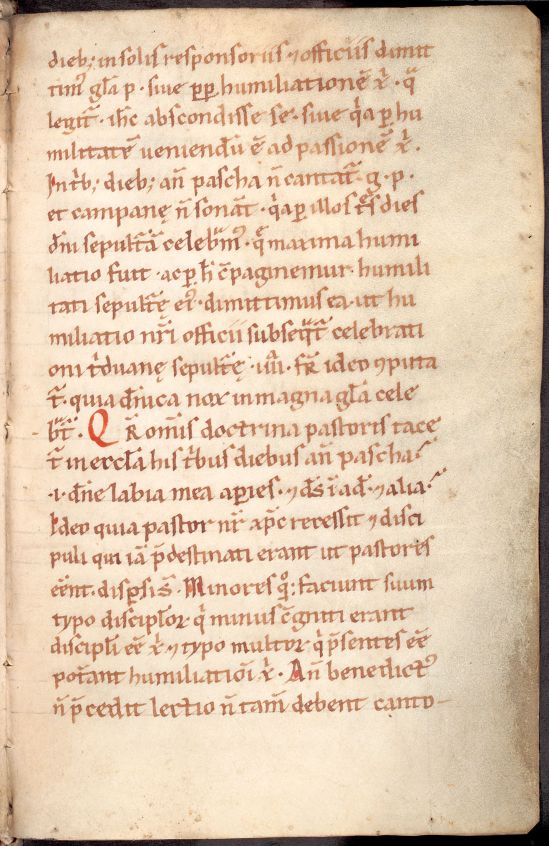 dieb; in solis responsoriis ⁊ officiis dimit
tim᷒ gl̄a p · sive p̱p̱ humiliationē x̄ · q̄
legit᷒ · ih̄c abscondisse se · sive q̇a p̱ hu
militatē veniendū ē ad passionē x̄ ·
In t̄b; dieb; an̄ pascha n̄ cantat᷒ · g · p ·
et campanę n̄ sonāt · q̇a p̱ illos dies
dn̄i celebm᷒ · q̄ maxima humi
liatio fuit · ac p̱ h̄ c̄paginemur · humili
tati ei᷒ · dimittimus ea · ut hu
miliatio nr̄i officii subseq̄t᷒ celebrati
oni t̄duanę · ideo ꝯputa
t᷒ · quia dn̄ica nox in magna gl̄a cele
bt᷒ · Q̄R om̄is doctrina pastoris tace
t᷒ in eccl̄a his t̄bus diebus an̄ pascha
· i · dn̄e labia mea ap̱ies · ⁊ d̄s ī ad̄ · ⁊ alia
Ideo quia pastor nr̄ recessit ⁊ disci
puli qui iā p̄destinati erant ut pastores
eēnt · disp̱si s̄ · Minores faciunt suum
typo discipl̄oꝝ q̇ minus c̄gniti erant
discipl̄i eē x̄ · ⁊ typo multoꝝ q̇ p̄sentes eē
pot̄ant humiliatiōi x̄ · An̄ benedict᷒
n̄ p̄cedit lectio n̄ tam̄ debent canto-